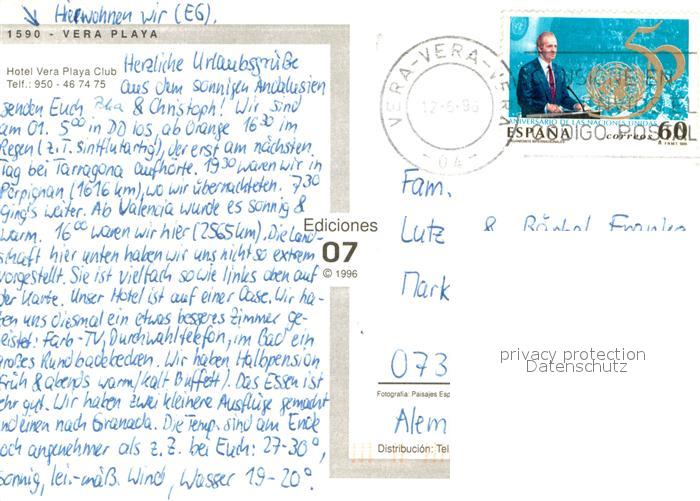 Hier wohnen wir (EG).
1590 - VERA PLAYA
Hotel Vera Playa Club
Telf.: 950 - 46 74 75
Herzliche Urlaubsgrüße
aus dem sonnigen Andalusien
senden Euch & Christoph! Wir sind
am 01. 5⁰⁰ in DD los, ab Orange 16³⁰ im
Regen (z.T. sintflutartig), der erst am nächsten
Tag bei Tarragona aufhörte. 19³⁰ waren wir in
Perpignan (1616 km), wo wir übernachteten. 7³⁰
ging's weiter. Ab Valencia wurde es sonnig &
warm. 16⁰⁰ waren wir hier (2565 km). Die Land-
schaft hier unten haben wir uns nicht so extrem
vorgestellt. Sie ist vielfach so wie links oben auf
der Karte. Unser Hotel ist auf einer Oase. Wir ha-
ben uns diesmal ein etwas besseres Zimmer ge-
leistet: Farb-TV, Durchwahltelefon, im Bad ein
großes Rundbadebecken. Wir haben Halbpension
(früh & abends warm/kalt Buffett). Das Essen ist
sehr gut. Wir haben zwei kleinere Ausflüge gemacht
und einen nach Granada. Die Temp. sind am Ende
noch angenehmer als z.Z. bei Euch: 27-30°,
sonnig, lei.-mäß. Wind, Wasser 19-20°.
Ediciones
07
© 1996
VERA-VERA-VERA
12-6-96
-04-
CONSIGNE EN
CODIGO POSTAL
50
ANIVERSARIO DE LAS NACIONES UNIDAS
ESPAÑA correos 60
Fam.
Lutz & Bärbel Franke
Mark
073
Fotografía: Paisajes Esp
Alem
Distribución: Tel
privacy protection
Datenschutz